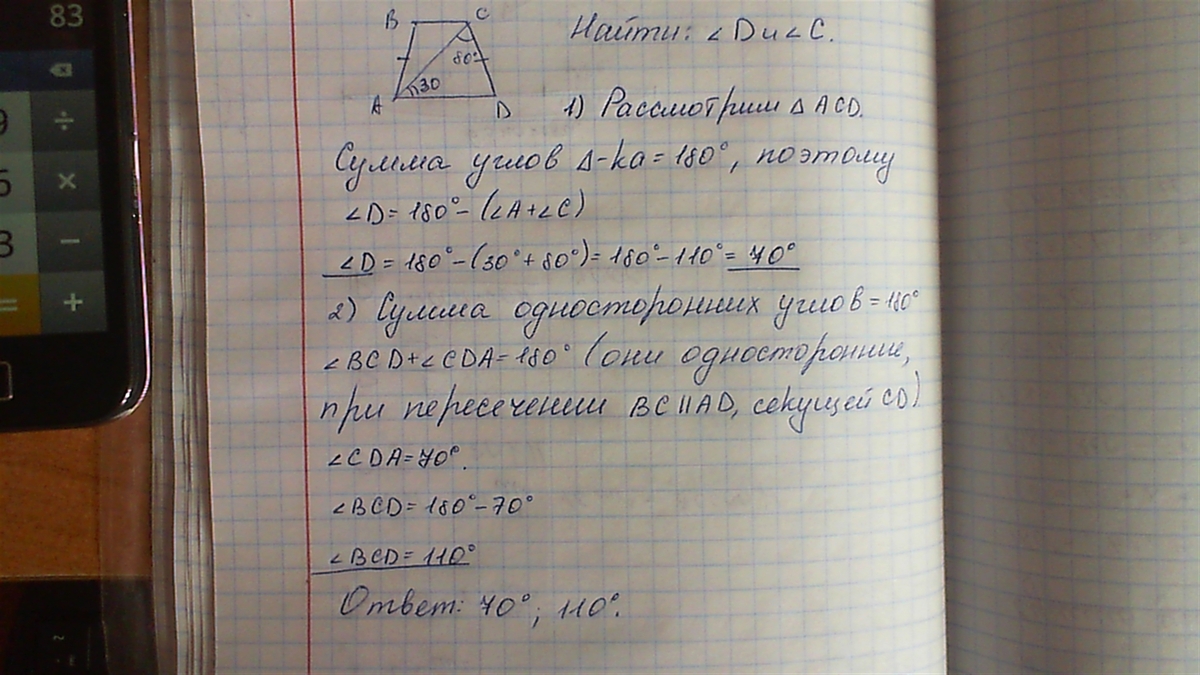 83
B C
Найти: ∠D и ∠C.
80°
30
A D
1) Рассмотрим ΔACD.
Сумма углов Δ-ka = 180°, поэтому
∠D = 180° - (∠A+∠C)
∠D = 180° - (30° + 80°) = 180° - 110° = 70°
2) Сумма односторонних углов = 180°
∠BCD + ∠CDA = 180° (они односторонние,
при пересечении BC II AD, секущей CD)
∠CDA = 70°.
∠BCD = 180° - 70°
∠BCD = 110°
Ответ: 70°; 110°.
9 ÷
6 ×
3 −
= +